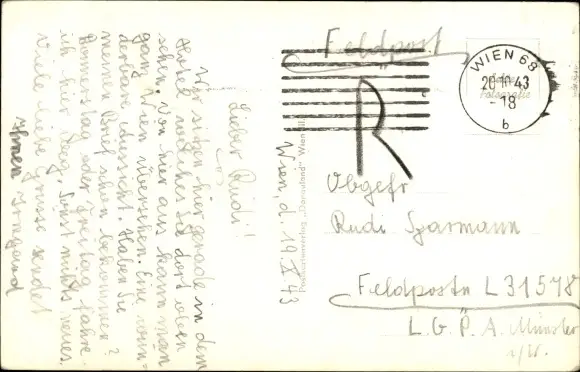 Wien, d. 19. X. 43
Lieber Rudi!
Wir sitzen hier gerade in dem
Hotel welches Sie dort oben
sehen. Von hier aus kann man
ganz Wien übersehen. Eine wun-
derbare Aussicht. Haben Sie
meinen Brief schon bekommen?
Donnerstag oder Freitag fahre
ich hier weg. Sonst nichts neues.
Viele liebe Grüsse sendet
Ihnen Irmgard
Feldpost
R
WIEN 68
20.10.43
-18
b
Echte
Fotografie
Postkartenverlag "Donauland" Wien
Obgefr
Rudi Sparmann
Feldpostn L31578
L.G.P.A. Münster
i/W.